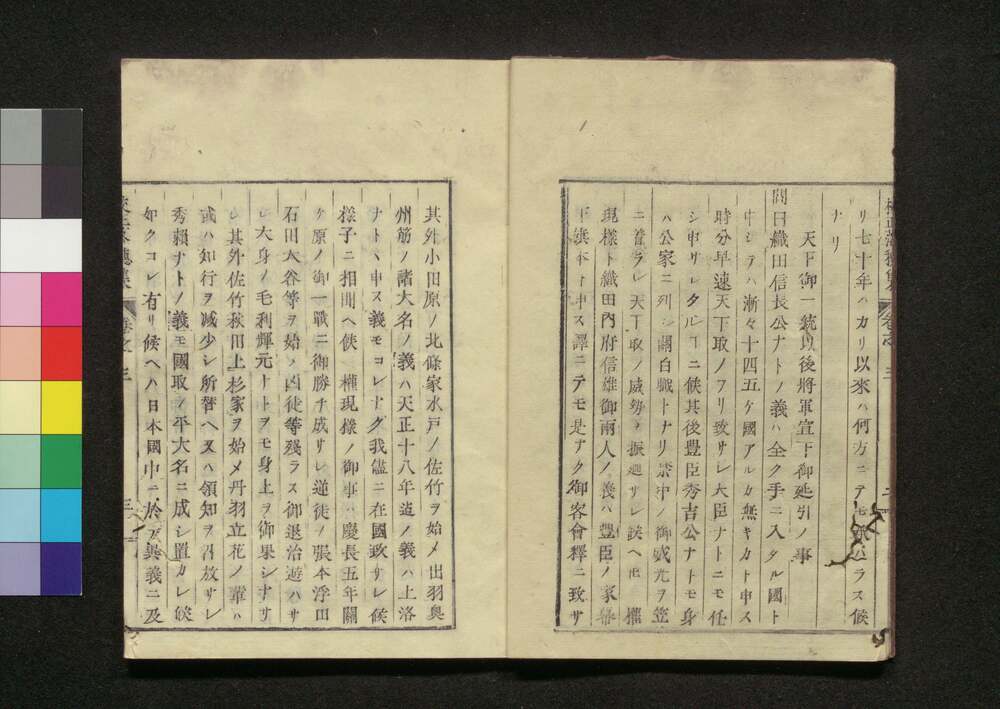 リ七十年ハカリ以來ハ何方ニテモ ハラス候
ナリ
天下御一統以後將軍宣下御延引ノ事
問曰織田信長公ナトノ義ハ全ク手ニ入タル國ト
申シテハ漸々十四五ケ國アルカ無キカト申ス
時分早速天下取ノフリ致サレ大臣ナトニモ任
シ申サレタル ニ候其後豊臣秀吉公ナトモ身
ハ公家ニ列シ關白職トナリ禁中ノ御威光ヲ笠
ニ着ラレ天下取ノ威勢ヲ振廻サレ候ヘ 權
現樣ト織田内府信雄御兩人ノ義ハ豊臣ノ家
下旗本ト申ス譯ニテモ是ナク御客會釋ニ致サ
其外小田原ノ北條家水戸ノ佐竹ヲ始メ出羽奥
州筋ノ諸大名ノ義ハ天正十八年迄ノ義ハ上洛
ナトヽ申ス義モコレナク我儘ニ在國致サレ候
樣子ニ相聞ヘ候 權現樣ノ御事ハ慶長五年關
ケ原ノ御一戰ニ御勝チ成サレ逆徒ノ張本浮田
石田大谷等ヲ始メ凶徒等殘ラス御退治遊ハサ
レ大身ノ毛利輝元ナトヲモ身上ヲ御果シナサ
レ其外佐竹秋田上杉家ヲ始メ丹羽立花ノ輩ハ
或ハ知行ヲ减少シ所替ヘ又ハ領知ヲ召放サレ
秀頼ナトノ義モ國取ノ平大名ニ成シ置カレ候
如クコレ有リ候ヘハ日本國中ニ於テ異義ニ及
卷之三
三